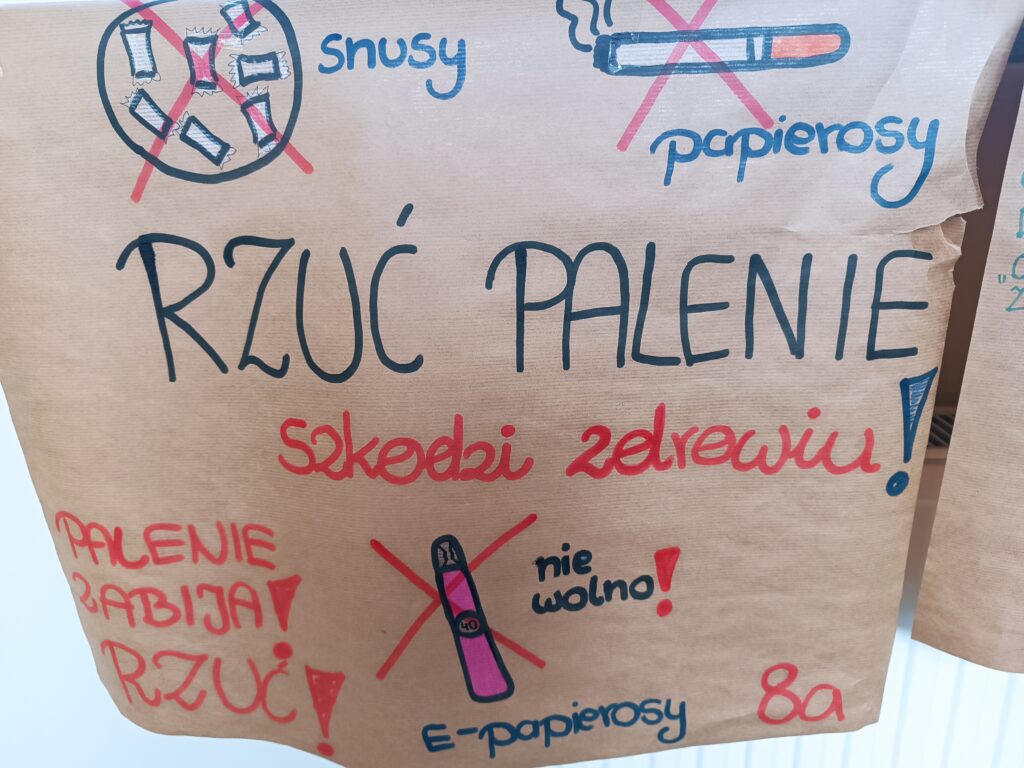 snusy
papierosy
RZUĆ PALENIE
szkodzi zdrowiu!
PALENIE
ZABIJA!
RZUĆ!
nie
wolno!
40
E-papierosy
8a